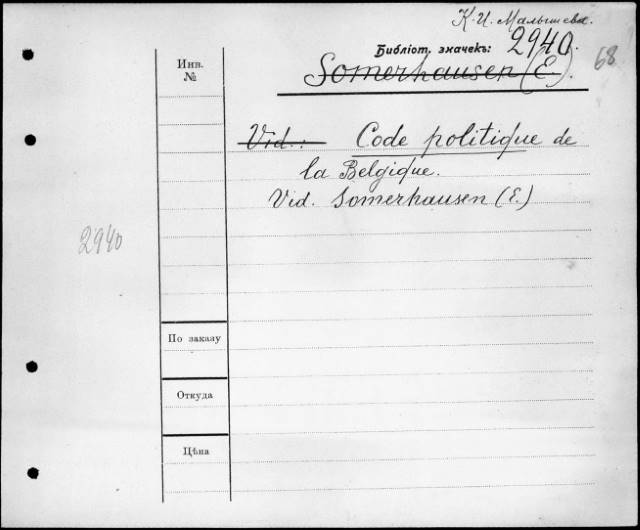 К. И. Малышева.
Библіот. значекъ: 2940.
68
Инв.
№
Somerhausen (E).
Vid.: Code politique de
la Belgique.
Vid. Somerhausen (E.)
2940
По заказу
Откуда
Цѣна